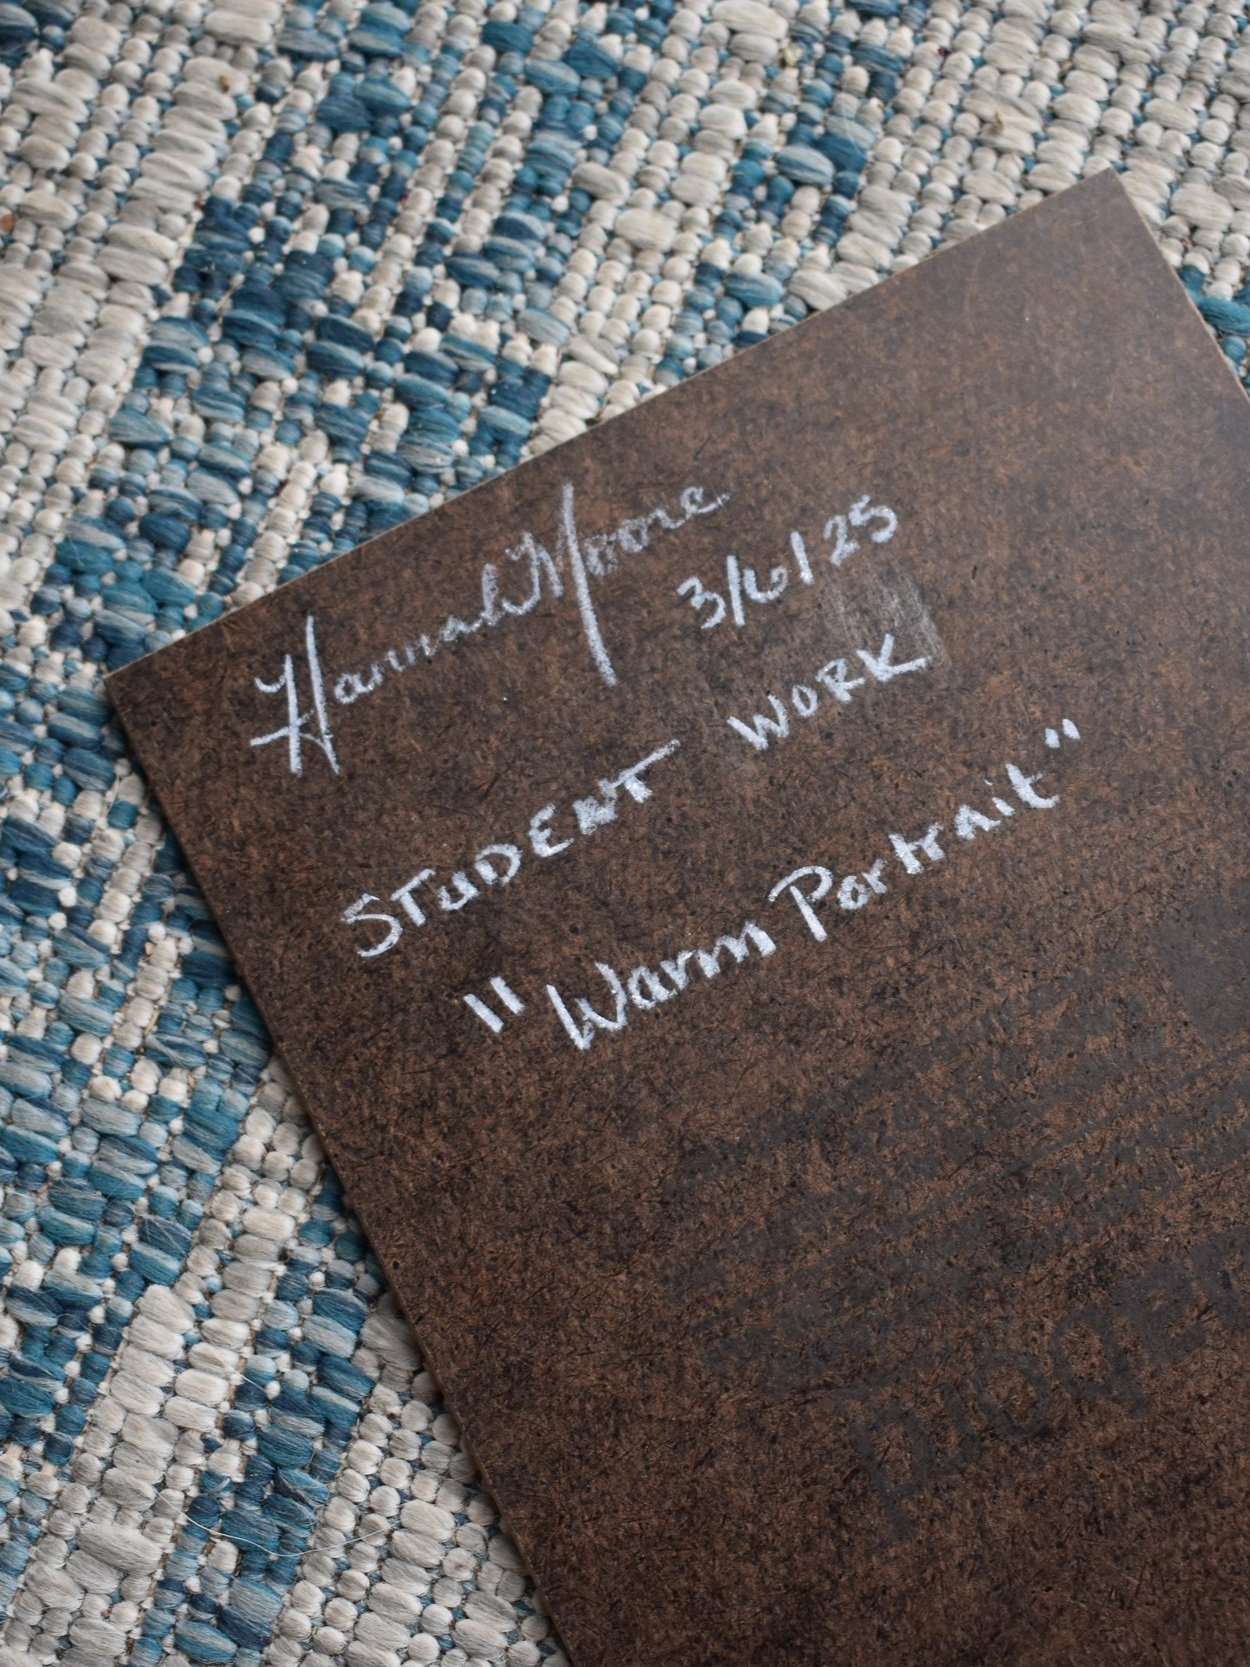 Hannah Moore
3/6/25
STUDENT WORK
"Warm Portrait"